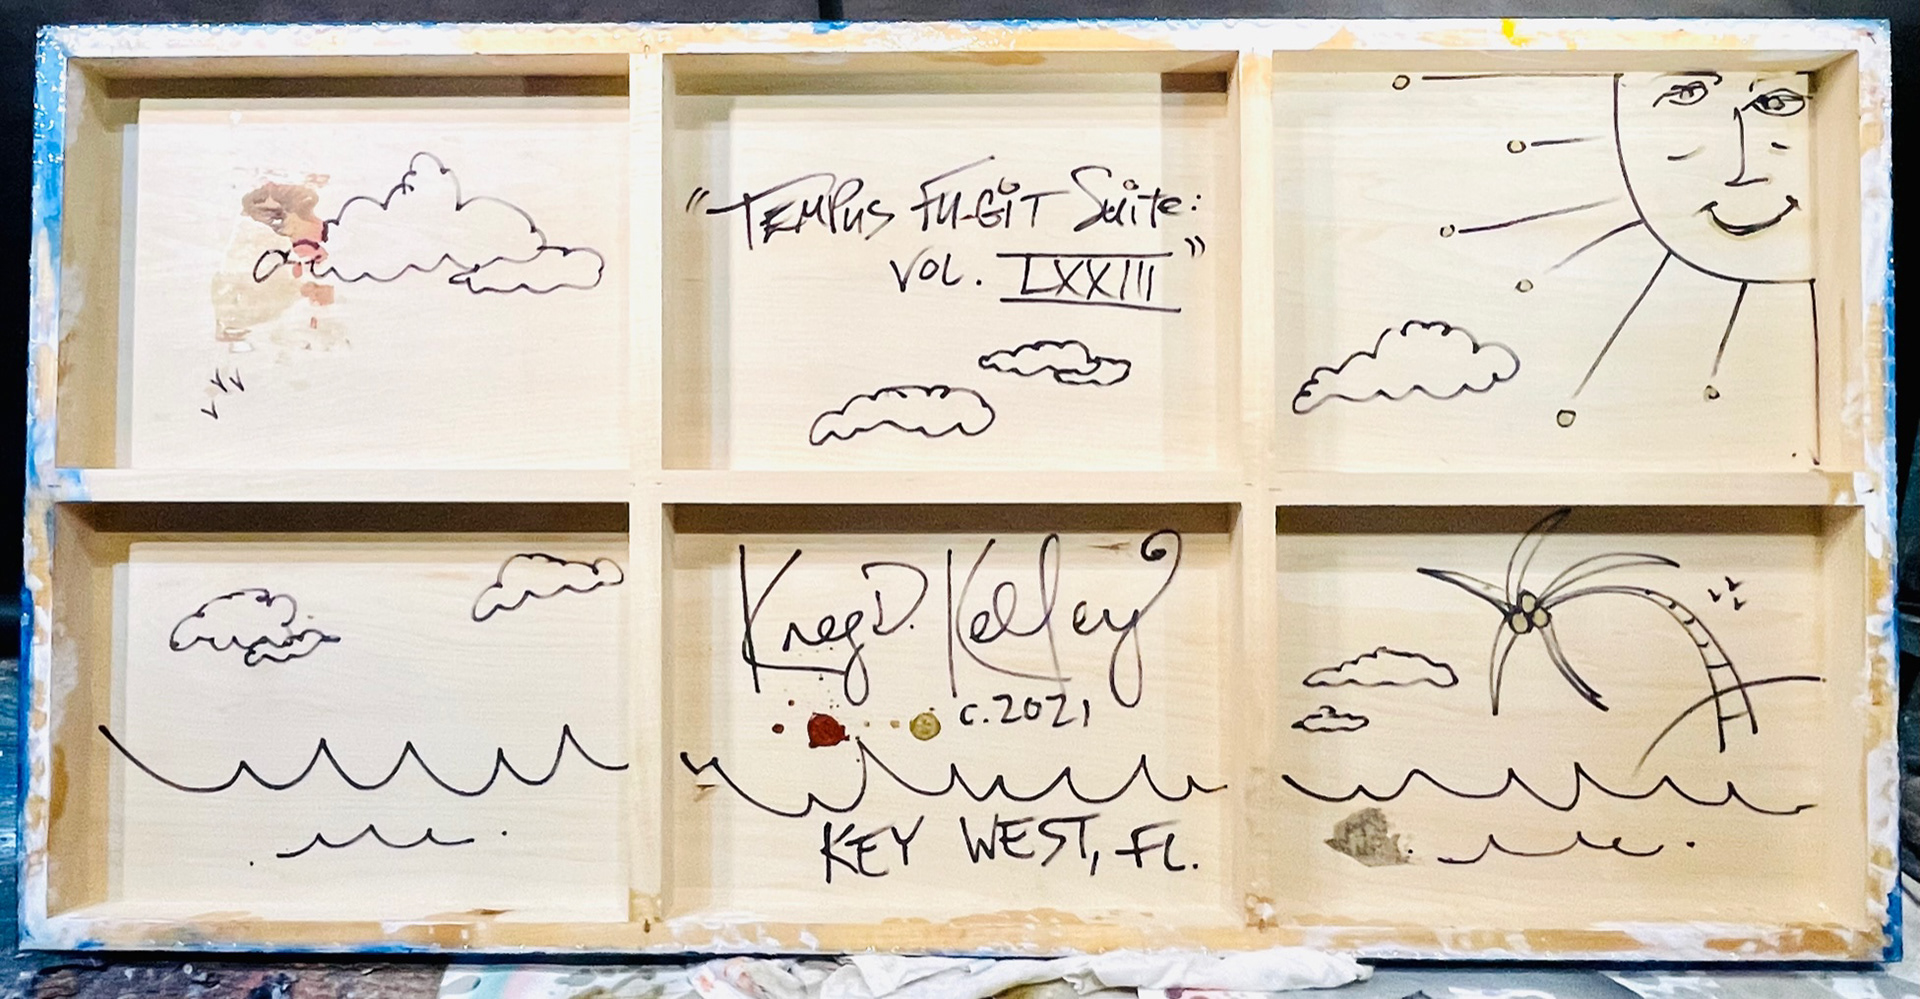 "TEMPUS FU-GIT Suite:
VOL. LXXIII"
Kreg D. Kelley
c. 2021
KEY WEST, FL.